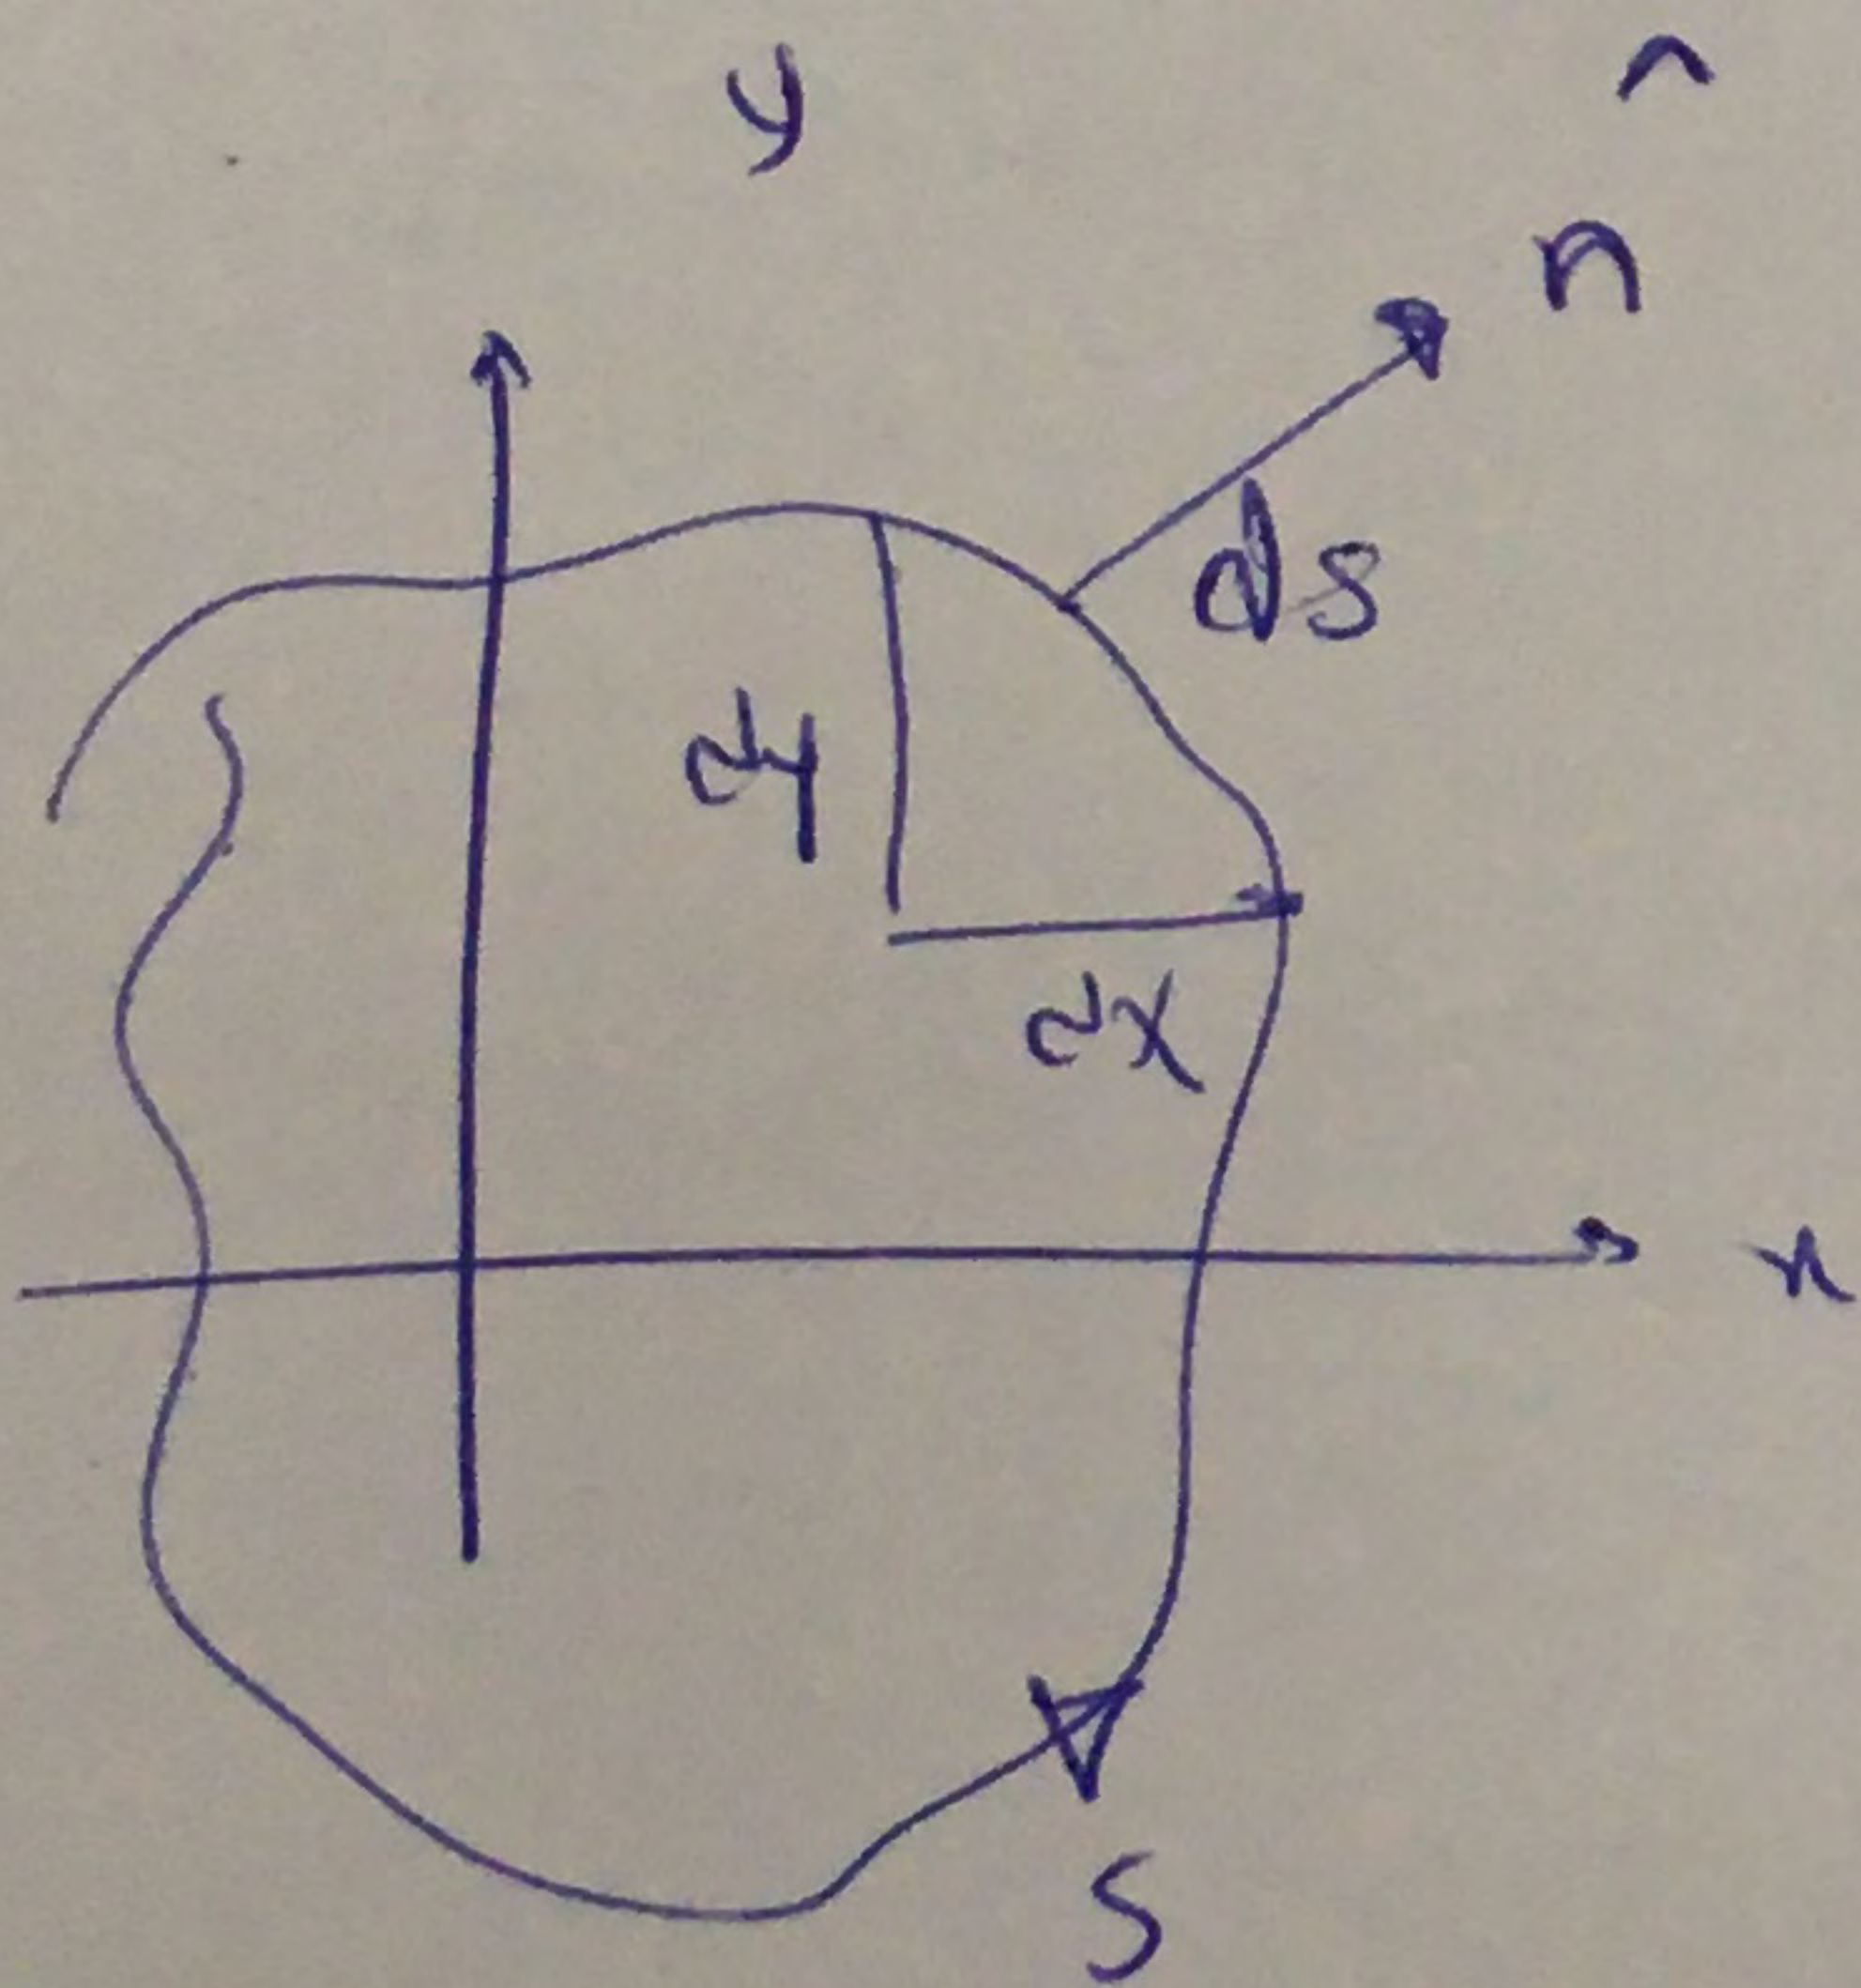 y
^
n
ds
dy
dx
x
S